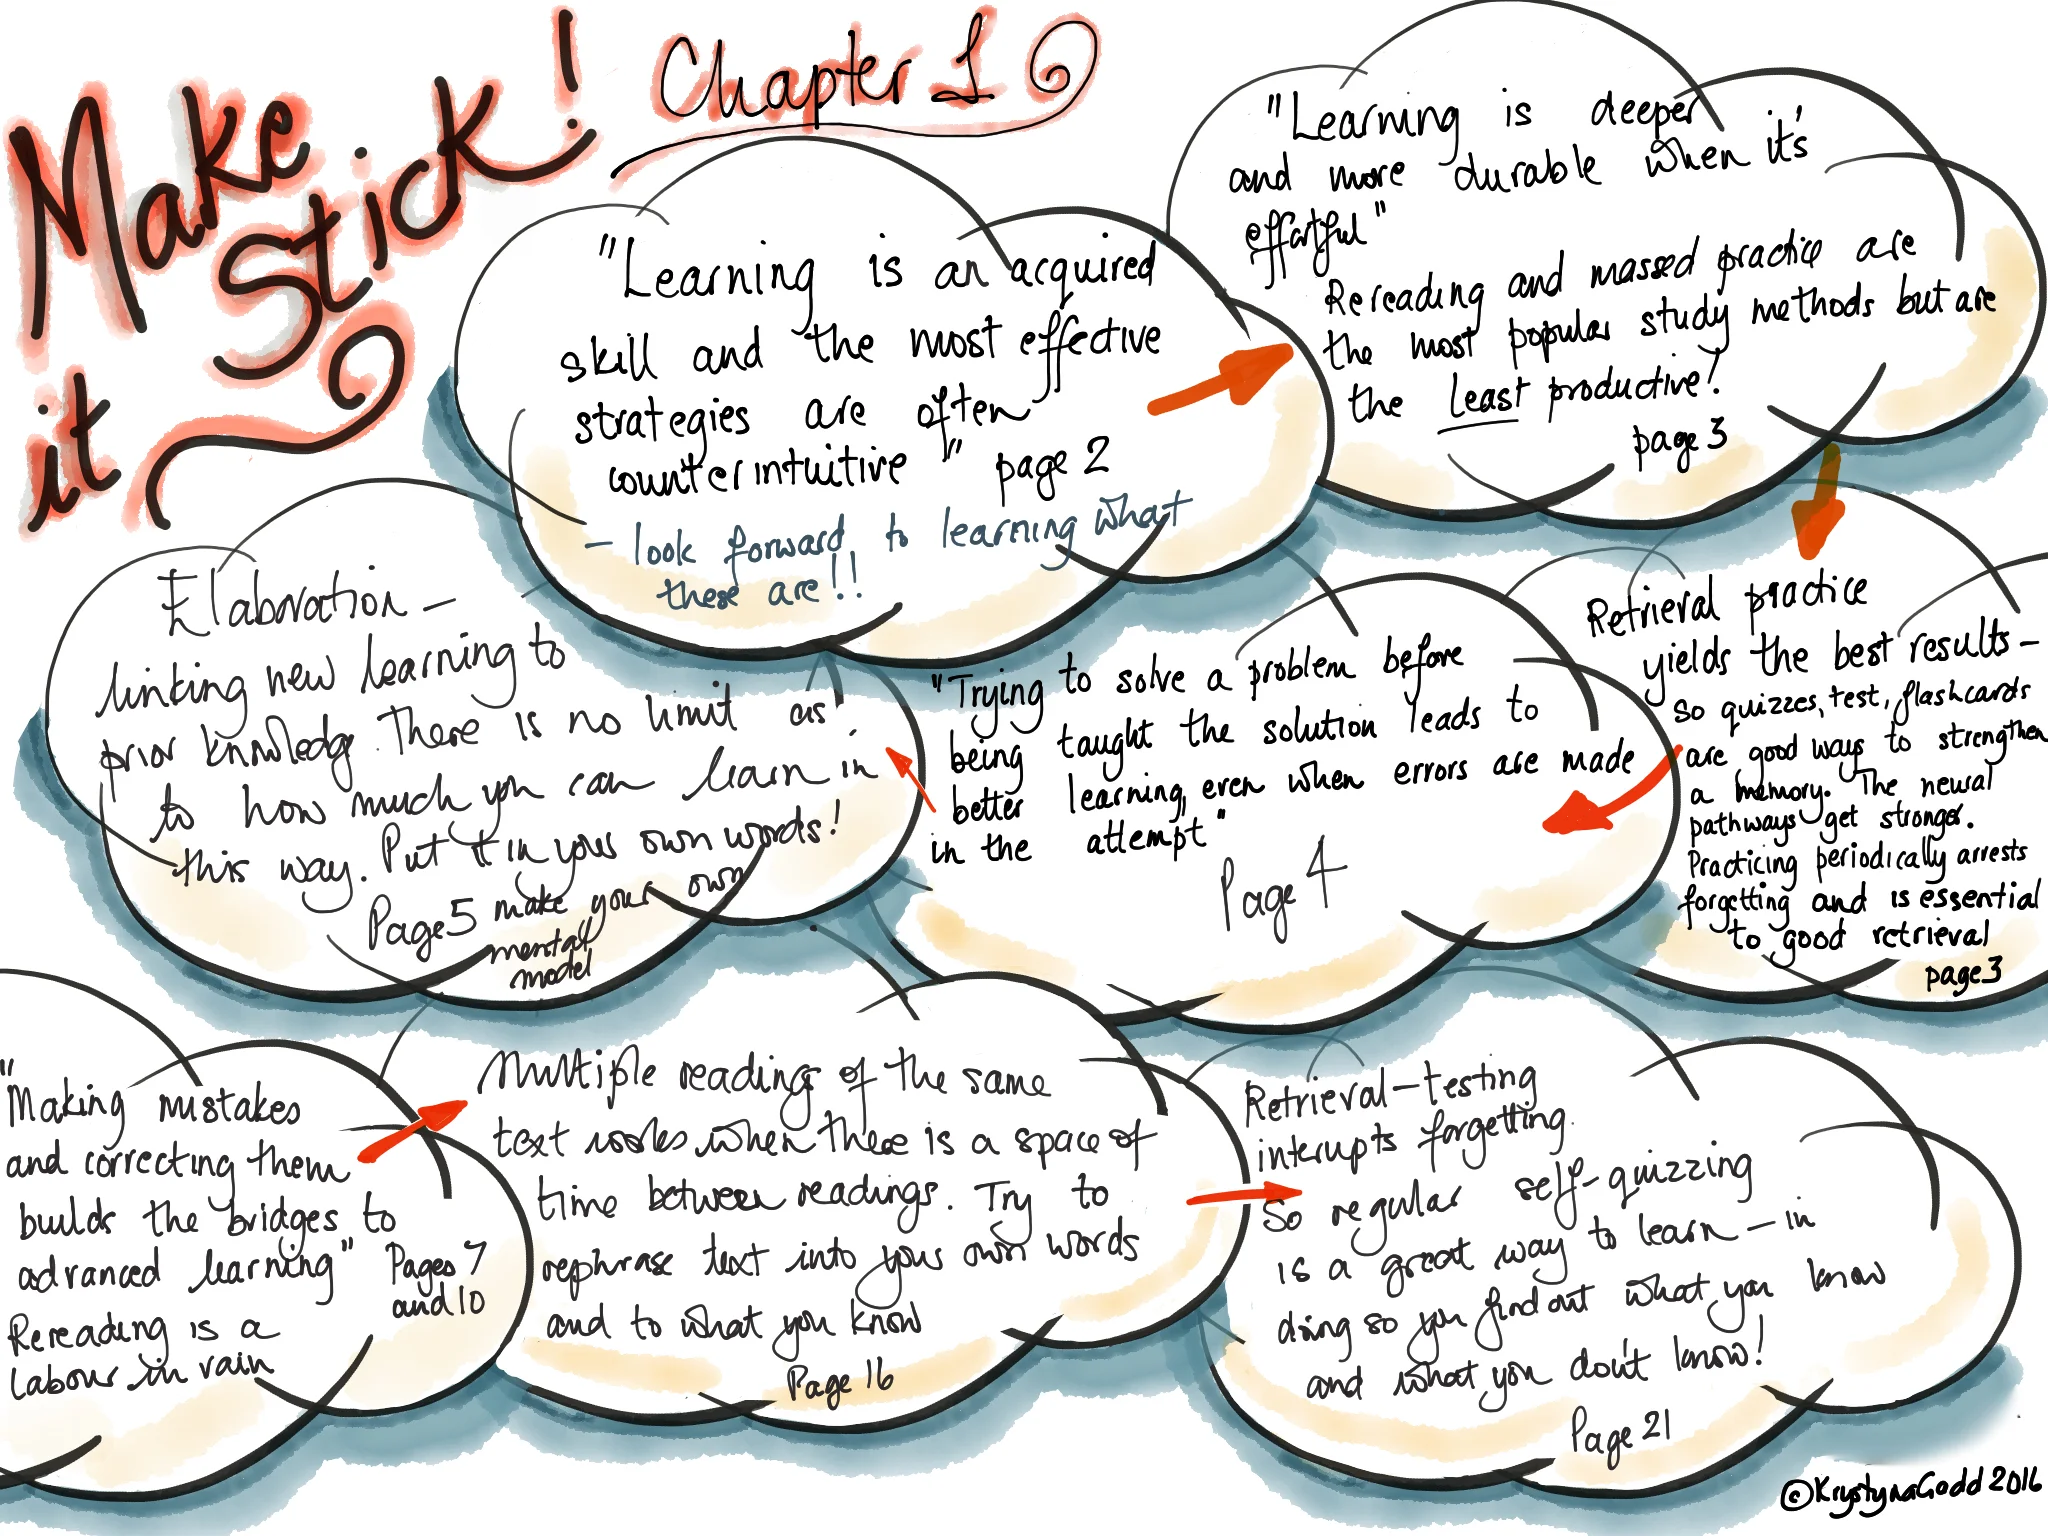 Make
it Stick!
Chapter 1
"Learning is an acquired
skill and the most effective
strategies are often
counterintuitive" page 2
- look forward to learning what
these are!!
"Learning is deeper
and more durable when it's
effortful"
Rereading and massed practice are
the most popular study methods but are
the Least productive!
page 3
Retrieval practice
yields the best results -
So quizzes, test, flashcards
are good ways to strengthen
a memory. The neural
pathways get stronger.
Practicing periodically arrests
forgetting and is essential
to good retrieval
page 3
"Trying to solve a problem before
being taught the solution leads to
better learning, even when errors are made
in the attempt"
Page 4
Elaboration -
linking new learning to
prior knowledge. There is no limit as
to how much you can learn in
this way. Put it in your own words!
Page 5 make your own
mental
model
"Making mistakes
and correcting them
builds the bridges to
advanced learning" Pages 7
and 10
Rereading is a
labour in vain
Multiple readings of the same
text works when there is a space of
time between readings. Try to
rephrase text into your own words
and to what you know
Page 16
Retrieval - testing
interupts forgetting.
So regular self-quizzing
is a great way to learn - in
doing so you find out what you know
and what you don't know!
Page 21
©KrystynaGadd 2016